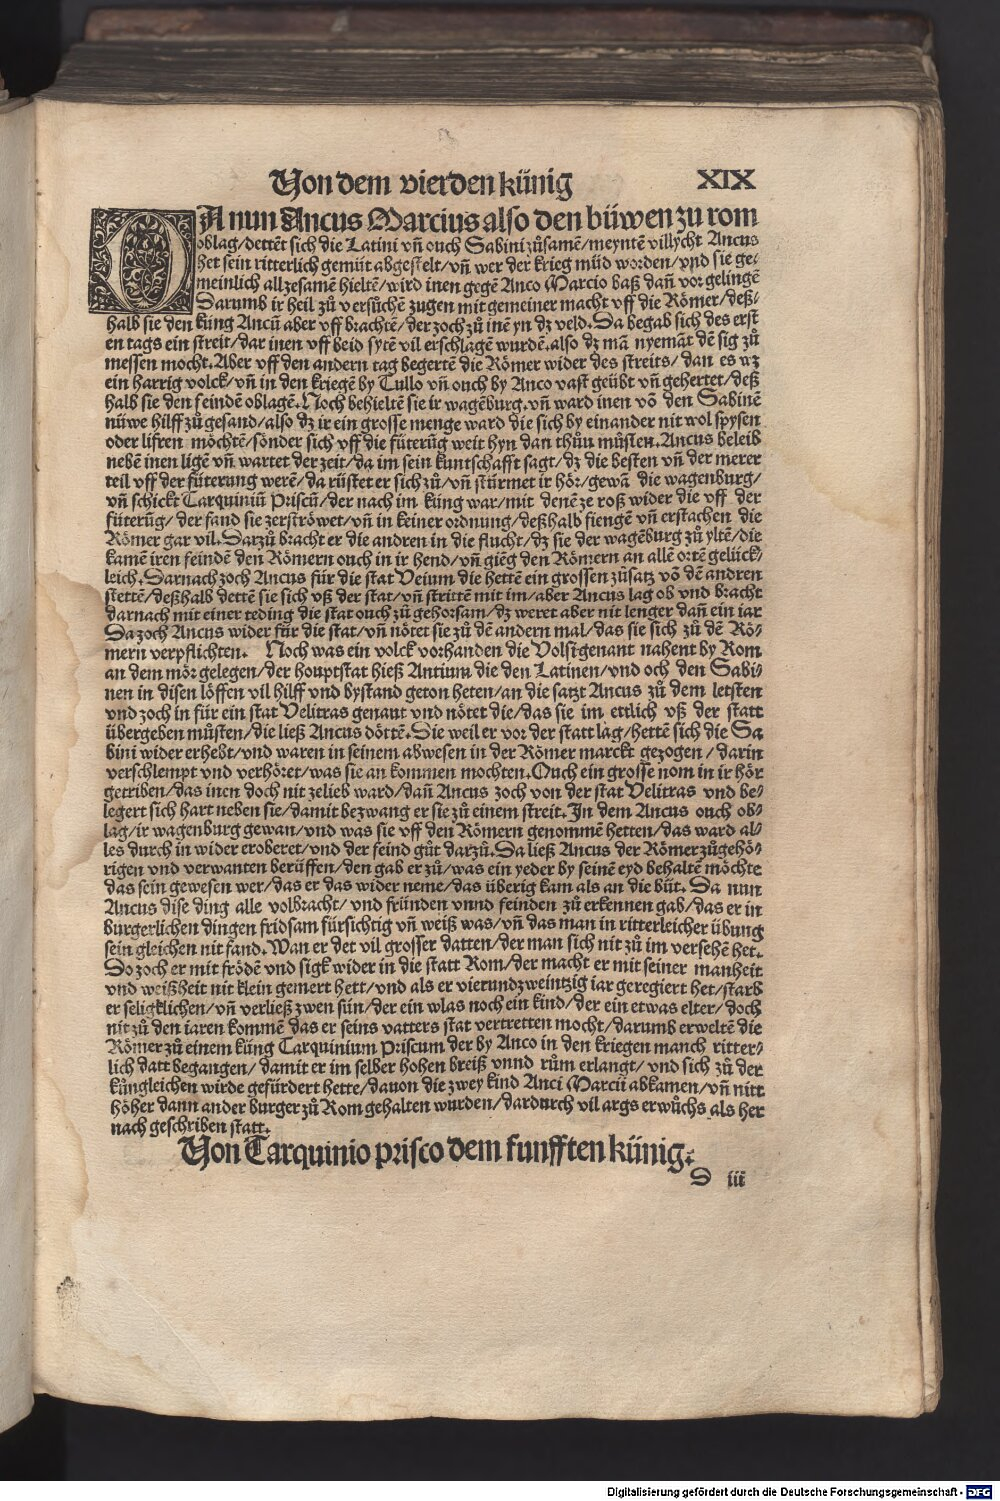 Von dem vierden künig XIX
DA nun Ancus Marcius also den büwen zu rom
oblag/dettēt sich die Latini vñ ouch Sabini zůsamē/meyntē villycht Ancus
het sein ritterlich gemüt abgestelt/vñ wer der krieg müd worden/vnd sie ge⸗
meinlich all zesamē hieltē/wird inen gegē Anco Marcio baß dañ vor gelingē
Darumb ir heil zů versůchē zugen mit gemeiner macht vff die Römer/deß⸗
halb sie den küng Ancū aber vff brachtē/der zoch zů inē yn dz veld. Da begab sich des erst
en tags ein streit/dar inen vff beid sytē vil erschlagē wurdē.also dz mā nyemāt dē sig zů
messen mocht.Aber vff den andern tag begertē die Römer wider des streits/dan es wz
ein harrig volck/vñ in den kriegē by Tullo vñ ouch by Anco vast geübt vñ gehertet/deß
halb sie den feindē oblagē.Noch behieltē sie ir wagēburg.vñ ward inen vō den Sabinē
nüwe hilff zů gesand/also dz ir ein grosse menge ward die sich by einander nit wol spysen
oder lifren möchtē/sönder sich vff die fůterūg weit hyn dan thůn můsten.Ancus beleib
nebē inen ligē vñ wartet der zeit/da im sein kuntschafft sagt/dz die besten vñ der merer
teil vff der fůterung werē/da rüstet er sich zů/vñ stürmet ir hör/gewā die wagenburg/
vñ schickt Tarquiniū Priscū/der nach im küng war/mit denē ze roß wider die vff der
fůterūg/der fand sie zerströwet/vñ in keiner ordnung/deßhalb fiengē vñ erstachen die
Römer gar vil.Darzů bracht er die andren in die flucht/dz sie der wagēburg zů yltē/die
kamē iren feindē den Römern ouch in ir hend/vñ giēg den Römern an allē ortē gelück⸗
leich.Darnach zoch Ancus für die stat Veium die hettē ein grossen zůsatz vō dē andren
stettē/deßhalb dettē sie sich vß der stat/vñ strittē mit im/aber Ancus lag ob vnd bracht
darnach mit einer teding die stat ouch zů gehorsam/dz weret aber nit lenger dañ ein iar
Da zoch Ancus wider für die stat/vñ nötet sie zů dē andern mal/das sie sich zů dē Rö⸗
mern verpflichten. Noch was ein volck vorhanden die Volsi genant nahent by Rom
an dem mör gelegen/der houptstat hieß Antium die den Latinen/vnd och den Sabi⸗
nen in disen löffen vil hilff vnd bystand geton heten/an die satzt Ancus zů dem letsten
vnd zoch in für ein stat Velitras genant vnd nötet die/das sie im ettlich vß der statt
übergeben můsten/die ließ Ancus döttē.Die weil er vor der statt lag/hettē sich die Sa
bini wider erhebt/vnd waren in seinem abwesen in der Römer marckt gezogen/darin
verschlempt vnd verhöret/was sie an kommen mochten.Ouch ein grosse nom in ir hör
getriben/das inen doch nit zelieb ward/dañ Ancus zoch von der stat Velitras vnd be⸗
legert sich hart neben sie/damit bezwang er sie zů einem streit.In dem Ancus ouch ob⸗
lag/ir wagenburg gewan/vnd was sie vff den Römern genommē hetten/das ward al⸗
les durch in wider eroberet/vnd der feind gůt darzů.Da ließ Ancus der Römer zůgehö⸗
rigen vnd verwanten berüffen/den gab er zů/was ein yeder by seinē eyd behaltē möchte
das sein gewesen wer/das er das wider neme/das überig kam als an die büt. Da nun
Ancus dise ding alle volbracht/vnd fründen vnnd feinden zů erkennen gab/das er in
burgerlichen dingen fridsam fürsichtig vñ weiß was/vñ das man in ritterleicher übung
sein gleichen nit fand.Wan er det vil grosser datten/der man sich nit zů im versehē het.
Do zoch er mit frödē vnd sigk wider in die statt Rom/der macht er mit seiner manheit
vnd weißheit nit klein gemert hett/vnd als er vierundzweintzig iar geregiert het/starb
er seligklichen/vñ verließ zwen sün/der ein wlas noch ein kind/der ein etwas elter/doch
nit zů den iaren kommē das er seins vatters stat vertretten mocht/darumb erweltē die
Römer zů einem küng Tarquinium Priscum der by Anco in den kriegen manch ritter⸗
lich datt begangen/damit er im selber hohen breiß vnnd rům erlangt/vnd sich zů der
künglleichen wirde gefürdert hette/dauon die zwey kind Anci Marcii abkamen/vñ nitt
höher dann ander burger zů Rom gehalten wurden/dardurch vil args erwůchs als her
nach geschriben statt.
Von Tarquinio prisco dem funfften künig.
D iii
Digitalisierung gefördert durch die Deutsche Forschungsgemeinschaft - DFG